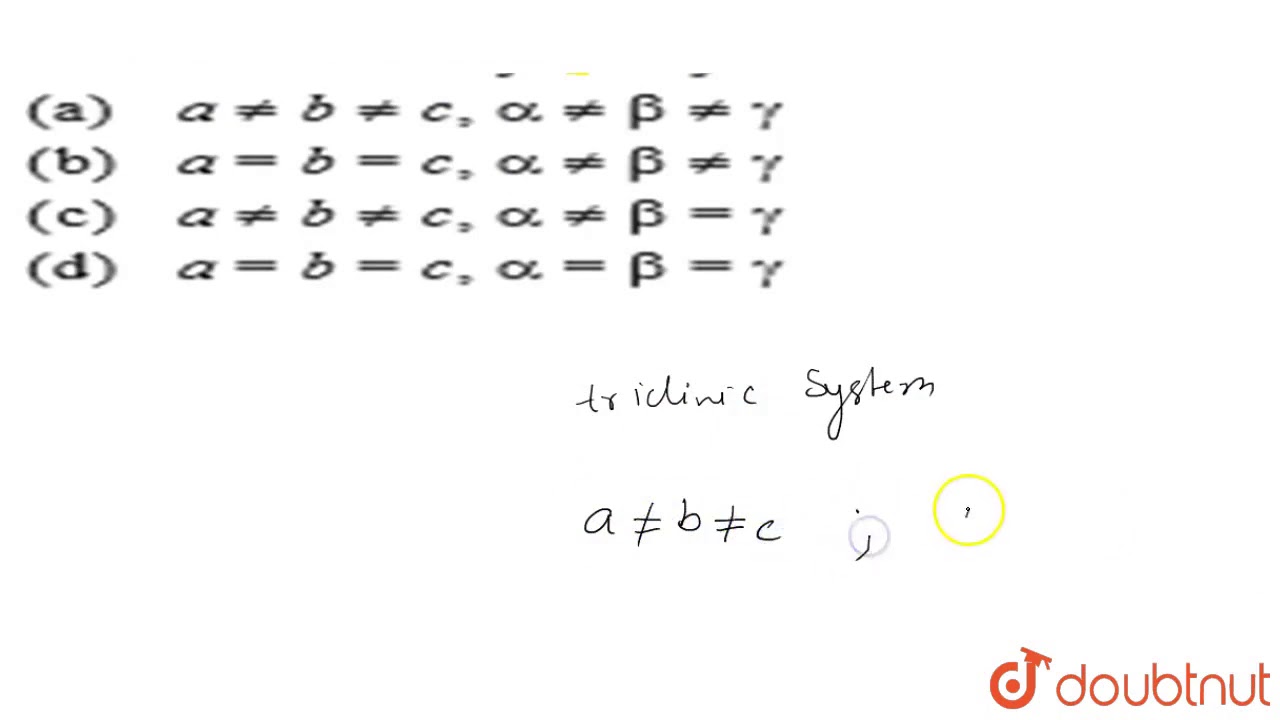 (a) a ≠ b ≠ c, α ≠ β ≠ γ
(b) a = b = c, α ≠ β ≠ γ
(c) a ≠ b ≠ c, α ≠ β = γ
(d) a = b = c, α = β = γ
triclinic System
a ≠ b ≠ c ;
doubtnut